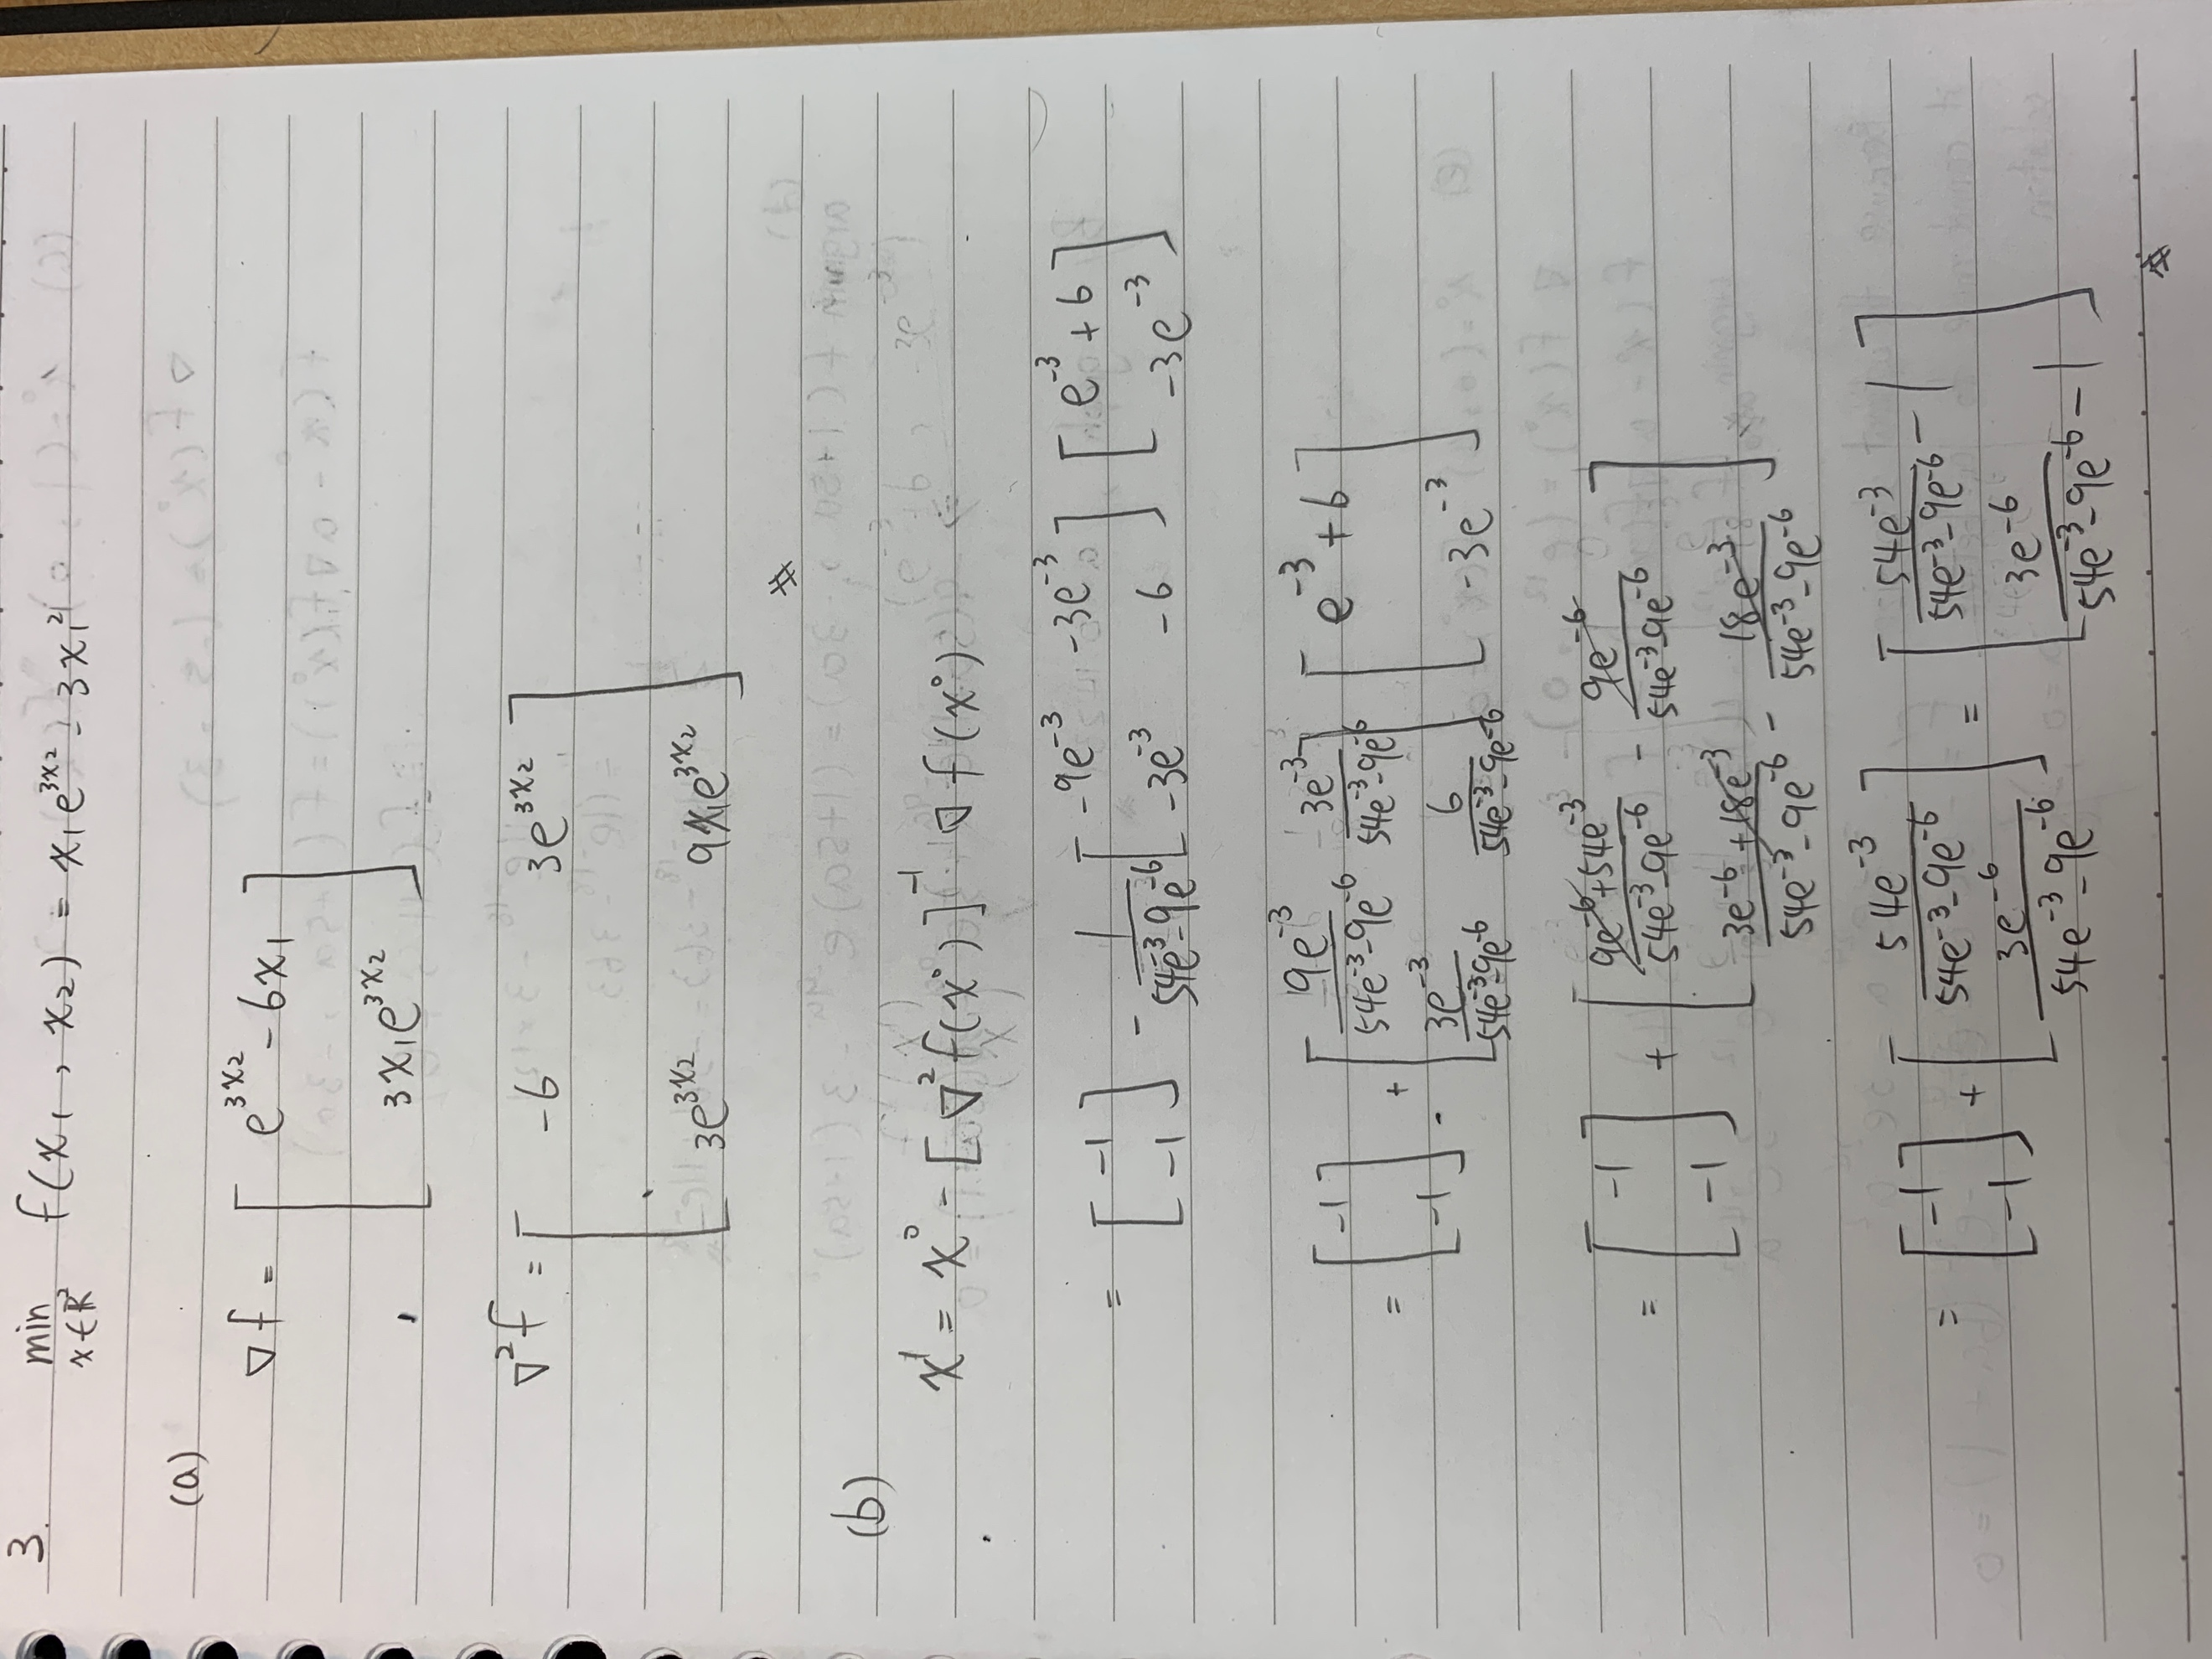 3. min f(x₁, x₂) = x₁e^{3x₂} - 3x₁²
x∈ℝ²
(a)
∇f = [ e^{3x₂} - 6x₁
3x₁e^{3x₂} ]
∇²f = [ -6 3e^{3x₂}
3e^{3x₂} 9x₁e^{3x₂} ]
(b)
x¹ = x⁰ - [∇²f(x⁰)]⁻¹ ∇f(x⁰)
= [ -1 ; -1 ] - 1/(54e⁻³-9e⁻⁶) [ -9e⁻³ -3e⁻³ ; -3e⁻³ -6 ] [ e⁻³+6 ; -3e⁻³ ]
= [ -1 ; -1 ] + [ 9e⁻³/(54e⁻³-9e⁻⁶) 3e⁻³/(54e⁻³-9e⁻⁶) ; 3e⁻³/(54e⁻³-9e⁻⁶) 6/(54e⁻³-9e⁻⁶) ] [ e⁻³+6 ; -3e⁻³ ]
= [ -1 ; -1 ] + [ (9e⁻⁶+54e⁻³)/(54e⁻³-9e⁻⁶) - 9e⁻⁶/(54e⁻³-9e⁻⁶) ; (3e⁻⁶+18e⁻³)/(54e⁻³-9e⁻⁶) - 18e⁻³/(54e⁻³-9e⁻⁶) ]
= [ -1 ; -1 ] + [ 54e⁻³/(54e⁻³-9e⁻⁶) ; 3e⁻⁶/(54e⁻³-9e⁻⁶) ] = [ 54e⁻³/(54e⁻³-9e⁻⁶) - 1 ; 3e⁻⁶/(54e⁻³-9e⁻⁶) - 1 ]